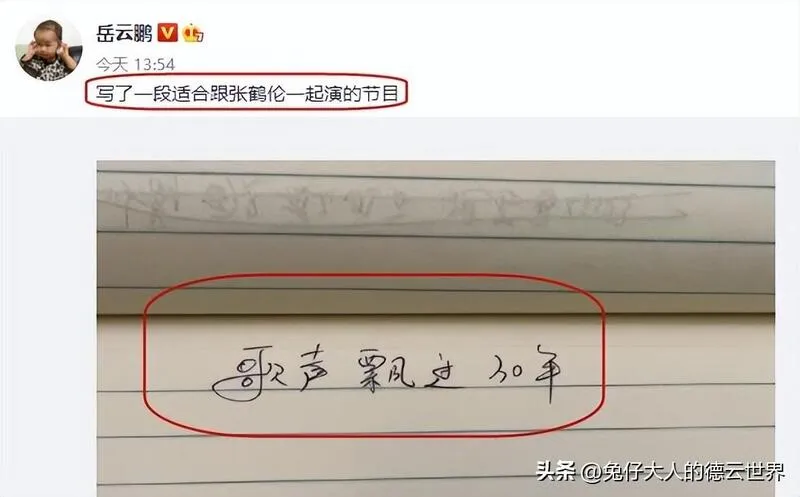 岳云鹏
今天 13:54
写了一段适合跟张鹤伦一起演的节目
歌声飘过30年
头条 @兔仔大人的德云世界